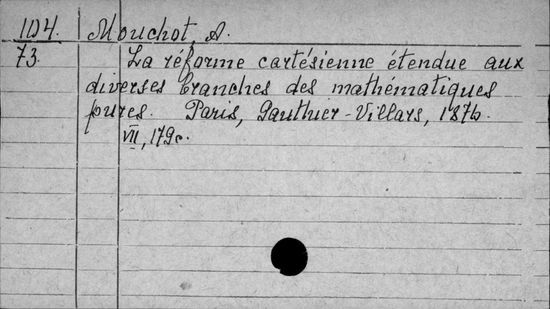 104. Mouchot, A.
73. La réforme cartésienne étendue aux
diverses branches des mathématiques
pures. Paris, Gauthier-Villars, 1876.
VII, 179c.